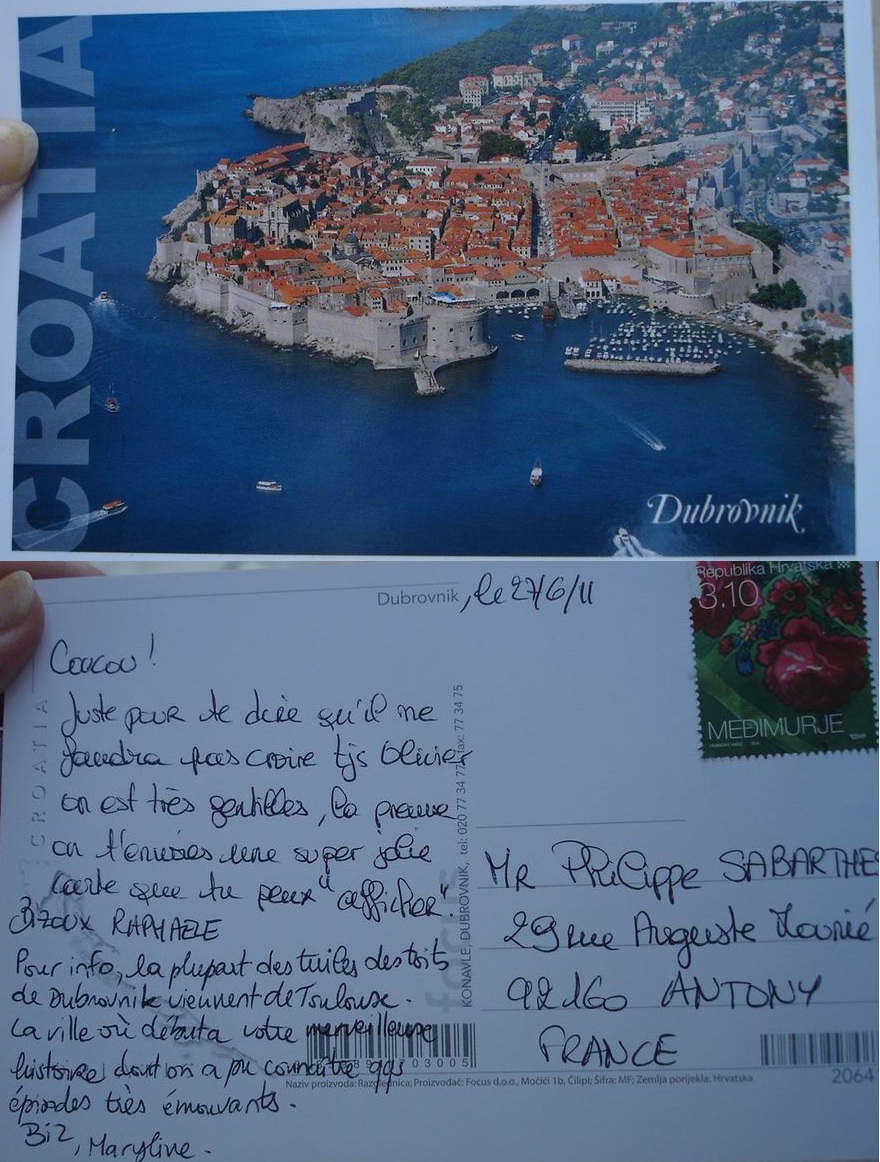 CROATIA
Dubrovnik
Dubrovnik, le 27/6/11
Republika Hrvatska
3.10
MEĐIMURJE
Coucou !
Juste pour te dire qu'il ne
faudra pas croire tjs Olivier
on est très gentilles, la preuve
on t'envoies une super jolie
carte que tu peux "afficher".
Bizoux RAPHAELE
Pour info, la plupart des tuiles des toits
de Dubrovnik viennent de Toulouse.
La ville où débuta votre merveilleuse
histoire dont on a pu connaître qqs
épisodes très émouvants.
Biz, Maryline.
CROATIA
KONAVLE, DUBROVNIK, tel: 020 77 34 77, fax: 77 34 75
Mr Philippe SABARTHES
29 rue Auguste
92160 ANTONY
FRANCE
703005
Naziv proizvoda: Razglednica; Proizvođač: Focus d.o.o., Močići 1b, Čilipi; Šifra: MF; Zemlja porijekla: Hrvatska
2064